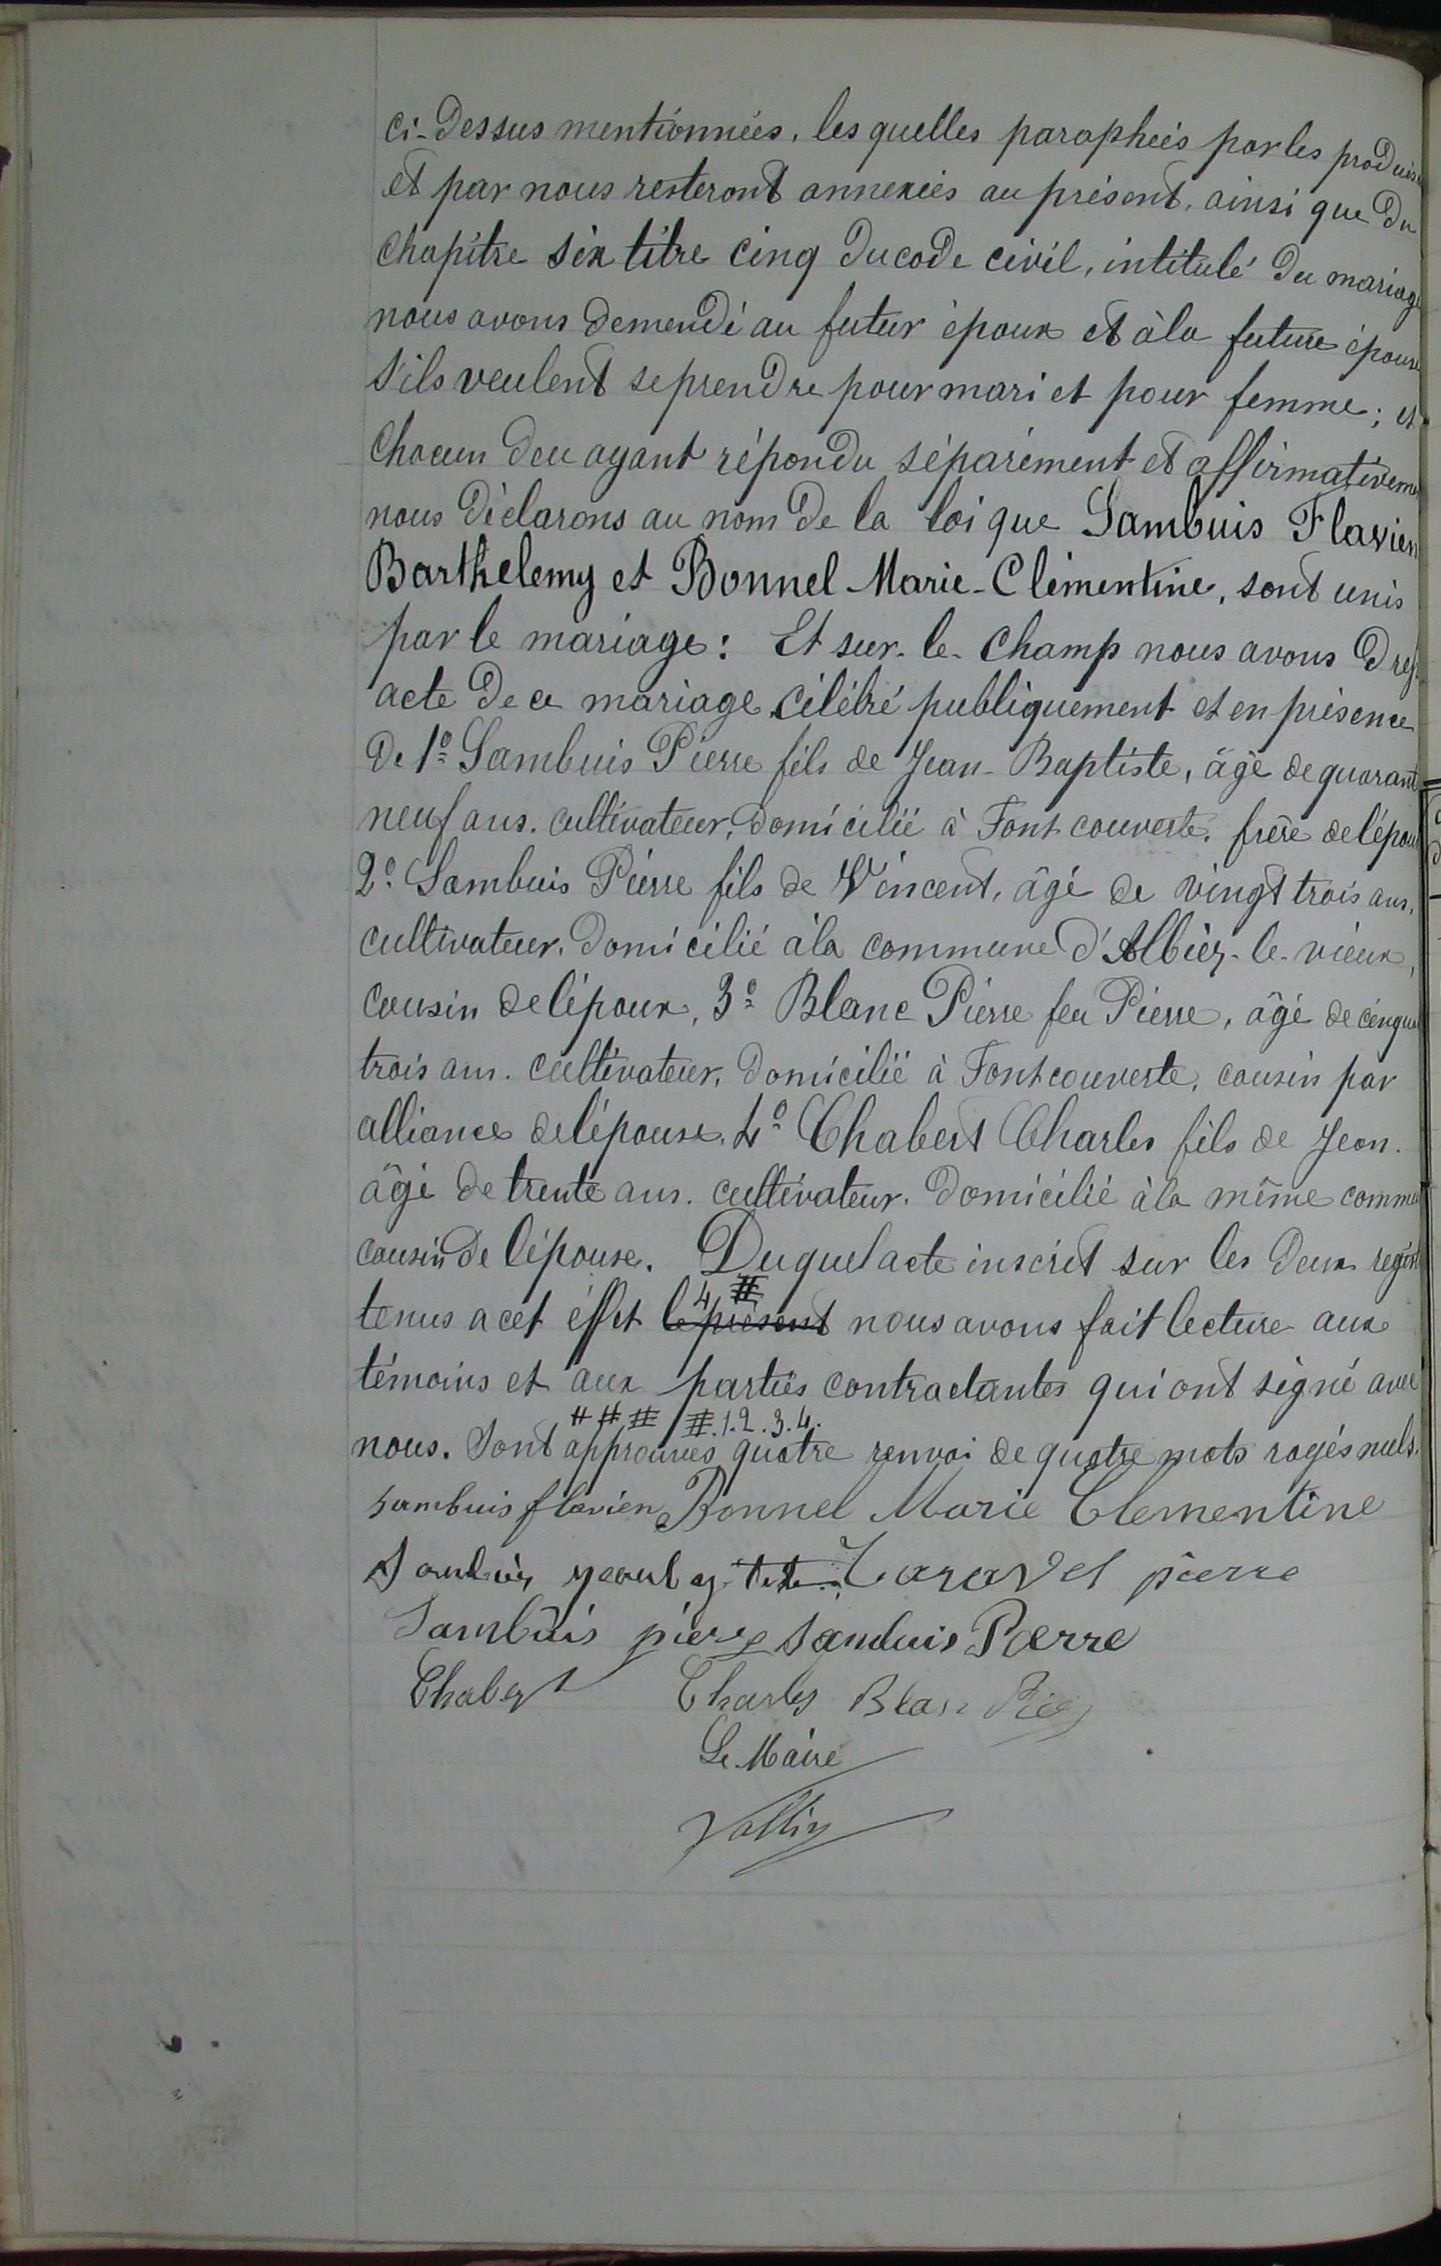 ci-dessus mentionnées, les quelles paraphées par les produis
et par nous resteront annexées au présent, ainsi que du
chapitre six titre cinq du code civil, intitulé du mariage
nous avons demendé au futur époux et à la future épouse
s'ils veulent se prendre pour mari et pour femme; et
chacun deu ayant répondu séparément et affirmativeme
nous déclarons au nom de la loi que Sambuis Flavien
Barthelemy et Bonnel Marie-Clémentine, sont unis
par le mariage: Et sur-le-champ nous avons dres
acte de ce mariage célébré publiquement et en présence
de 1º Sambuis Pierre fils de Jean-Baptiste, âgé de quarant
neuf ans. cultivateur, domicilié à Fontcouverte, frère de l'épou
2º Sambuis Pierre fils de Vincent, âgé de vingt trois ans,
cultivateur, domicilié à la commune d'Albiez-le-vieux,
cousin de l'époux, 3º Blanc Pierre feu Pierre, âgé de cinqua
trois ans. cultivateur, domicilié à Fontcouverte, cousin par
alliance de l'épouse, 4º Chabert Charles fils de Jean.
âgé de trente ans. cultivateur. domicilié à la même commu
cousin de l'épouse. Duquel acte inscrit sur les deux regist
4 #
tenus a cet effet le présent nous avons fait lecture aux
témoins et aux parties contractantes qui ont signé avec
# # # #.1.2.3.4.
nous. Sont approuvés quatre renvoi de quatre mots rayés nuls.
Sambuis flavien Bonnel Marie Clementine
Sambuis Taravel pierre
Sambuis pierre Sambuis Pierre
Chabert Charles Blan Pie
Le Maire